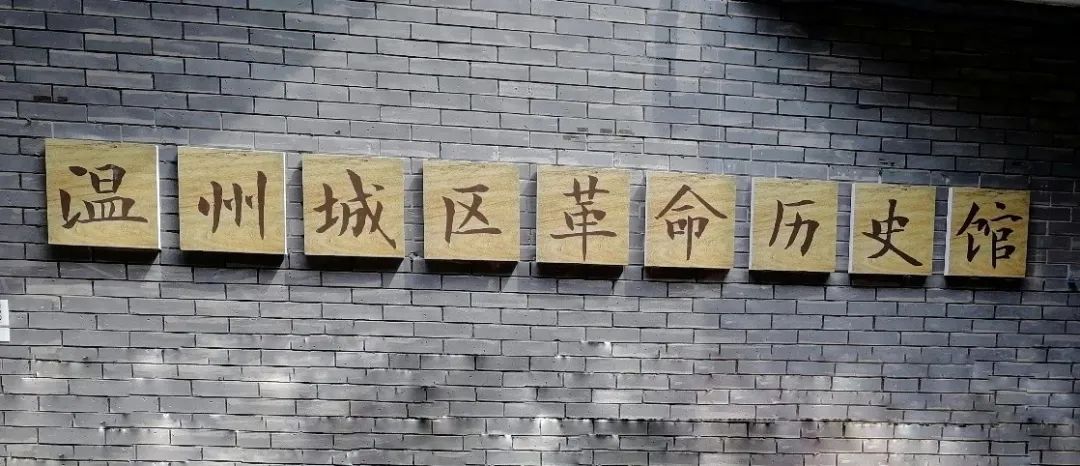 温州城区革命历史馆